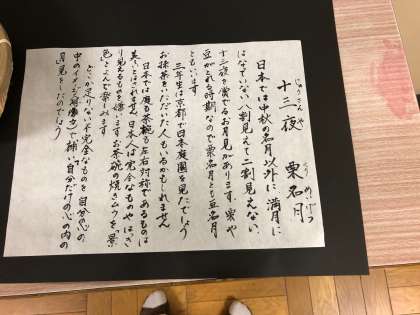 じゅうさんや
十三夜
くりめいげつ
栗名月
日本では中秋の名月以外に満月に
はなていない八割見えて二割見えない、
十三夜を賞でるお月見があります。栗や
豆がとれる時期なので栗名月とも豆名月
ともいいます。
三年生は京都で日本庭園を見たでしょう
お抹茶をいただいた人もいるかもしれません
日本では庭も茶碗も左右対称であるものは
美しとはされません。日本人は完全なものやはっき
り見えるものを嫌います。お茶碗の焼きムラを「景
色」とよんで楽しみます。
どこか足りない不完全なものを自分の心の
中のイメージ(想像力)で補い「自分だけの心の内の
月」見をしたのでしょう